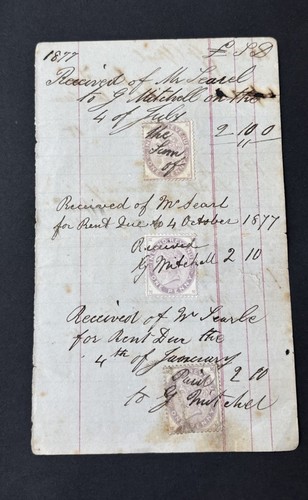 1877 £ S D
Received of Mr Searel
to G Mitchell on the
4 of July 2 10 0
the
Sum
of
Received of Mr Searl
for Rent Due to 4 October 1877
Received
G Mitchell 2 10
Received of Mr Searle
for Rent Due the
4th of January
Paid 2 10
to G Mitchel